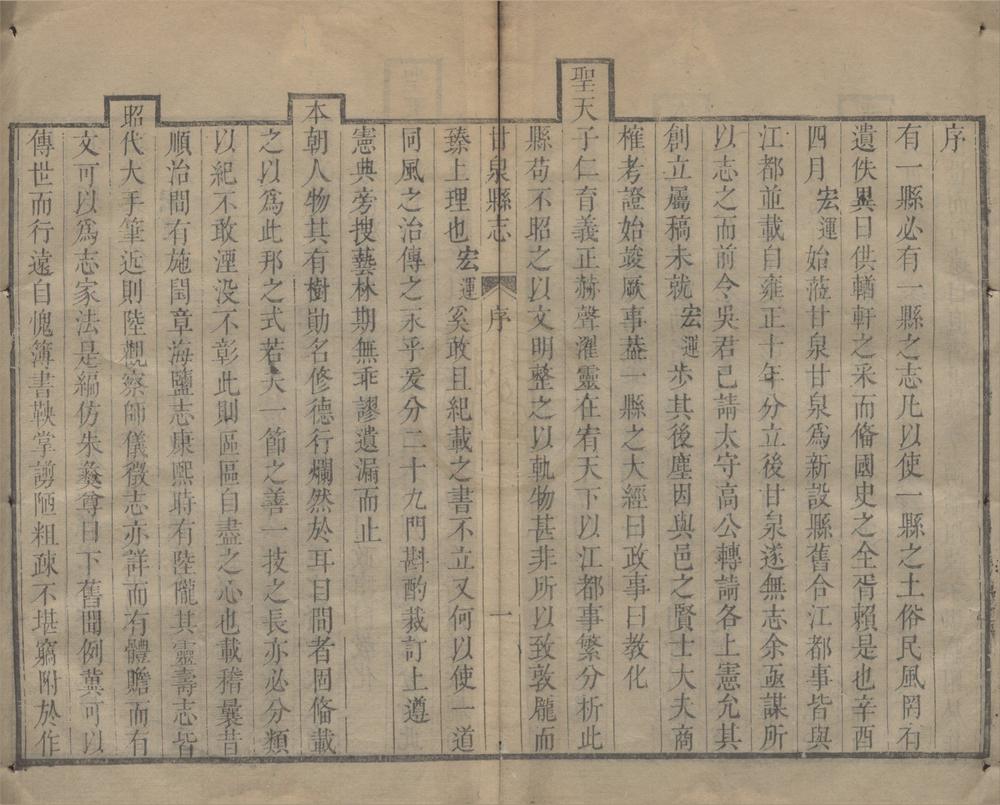 序
有一縣必有一縣之志凡以使一縣之土俗民風罔有
遺佚異日供輶軒之采而俻國史之全胥賴是也辛酉
四月宏運始蒞甘泉甘泉爲新設縣舊合江都事皆與
江都並載自雍正十年分立後甘泉遂無志余亟謀所
以志之而前令吳君已請太守高公轉請各上憲允其
創立屬稿未就宏運步其後塵因與邑之賢士大夫商
榷考證始竣厥事葢一縣之大經曰政事曰教化
聖天子仁育義正赫聲濯靈在宥天下以江都事繁分析此
縣苟不昭之以文明整之以軌物甚非所以致敦龐而
甘泉縣志 序 一
臻上理也宏運奚敢且紀載之書不立又何以使一道
同風之治傳之永乎爰分二十九門斟酌裁訂上遵
憲典旁搜藝林期無乖謬遺漏而止
本朝人物其有樹勛名修德行爛然於耳目間者固俻載
之以爲此邦之式若夫一節之善一技之長亦必分類
以紀不敢湮没不彰此則區區自盡之心也載稽曩昔
順治間有施閏章海鹽志康熙時有陸隴其靈壽志皆
昭代大手筆近則陸觀察師儀徵志亦詳而有體贍而有
文可以爲志家法是編仿朱彝尊日下舊聞例冀可以
傳世而行遠自愧簿書鞅掌謭陋粗疎不堪竊附於作